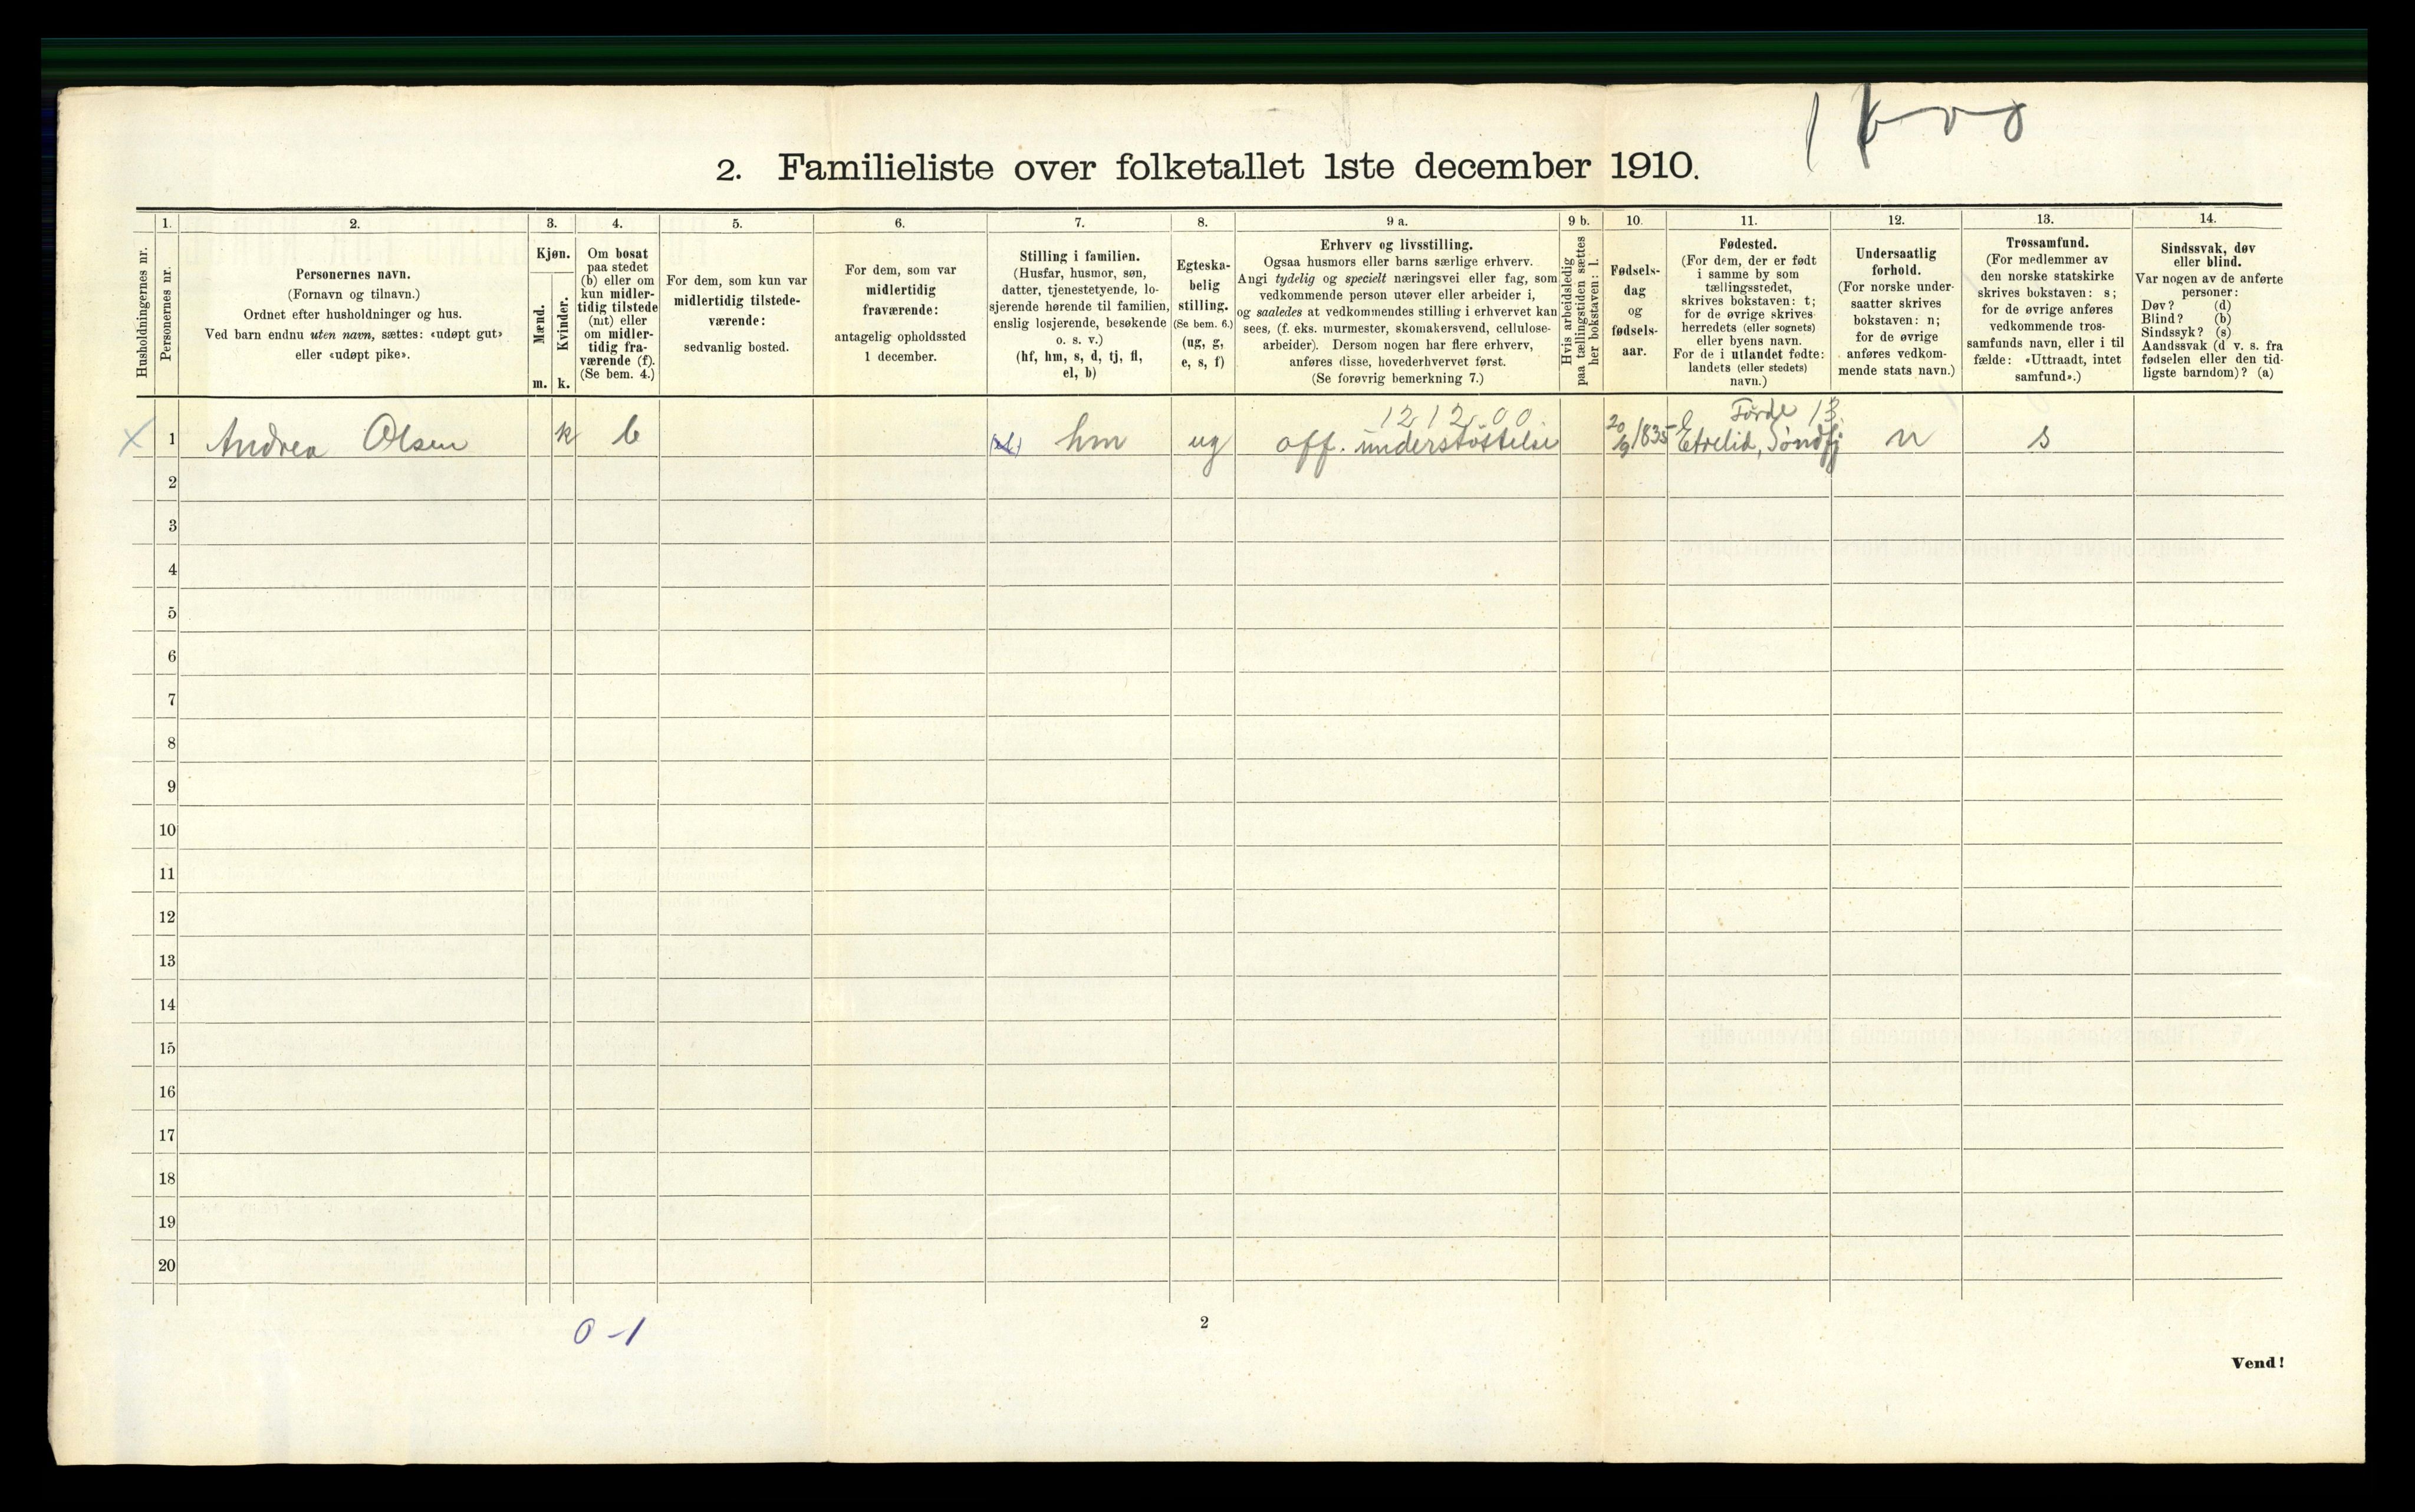 2. Familieliste over folketallet 1ste december 1910.
Husholdningernes nr.
1.
Personernes nr.
2.
Personernes navn.
(Fornavn og tilnavn.)
Ordnet efter husholdninger og hus.
Ved barn endnu uten navn, sættes: «udøpt gut»
eller «udøpt pike».
3.
Kjøn.
Mænd.
Kvinder.
m. k.
4.
Om bosat
paa stedet
(b) eller om
kun midler-
tidig tilstede
(mt) eller
om midler-
tidig fra-
værende (f).
(Se bem. 4.)
5.
For dem, som kun var
midlertidig tilstede-
værende:
sedvanlig bosted.
6.
For dem, som var
midlertidig
fraværende:
antagelig opholdssted
1 december.
7.
Stilling i familien.
(Husfar, husmor, søn,
datter, tjenestetyende, lo-
sjerende hørende til familien,
enslig losjerende, besøkende
o. s. v.)
(hf, hm, s, d, tj, fl,
el, b)
8.
Egteska-
belig
stilling.
(Se bem. 6.)
(ug, g,
e, s, f)
9 a.
Erhverv og livsstilling.
Ogsaa husmors eller barns særlige erhverv.
Angi tydelig og specielt næringsvei eller fag, som
vedkommende person utøver eller arbeider i,
og saaledes at vedkommendes stilling i erhvervet kan
sees, (f. eks. murmester, skomakersvend, cellulose-
arbeider). Dersom nogen har flere erhverv,
anføres disse, hovederhvervet først.
(Se forøvrig bemerkning 7.)
9 b.
Hvis arbeidsledig
paa tællingstiden sættes
her bokstaven: l.
10.
Fødsels-
dag
og
fødsels-
aar.
11.
Fødested.
(For dem, der er født
i samme by som
tællingsstedet,
skrives bokstaven: t;
for de øvrige skrives
herredets (eller sognets)
eller byens navn.
For de i utlandet fødte:
landets (eller stedets)
navn.)
12.
Undersaatlig
forhold.
(For norske under-
saatter skrives
bokstaven: n;
for de øvrige
anføres vedkom-
mende stats navn.)
13.
Trossamfund.
(For medlemmer av
den norske statskirke
skrives bokstaven: s;
for de øvrige anføres
vedkommende tros-
samfunds navn, eller i til
fælde: «Uttraadt, intet
samfund».)
14.
Sindssvak, døv
eller blind.
Var nogen av de anførte
personer:
Døv? (d)
Blind? (b)
Sindssyk? (s)
Aandssvak (d v. s. fra
fødselen eller den tid-
ligste barndom)? (a)
12 12.00 Førde 13
x 1 Andrea Olsen k b hm ug off. understøttelse 20/9 1835 Søndfj n s
2
3
4
5
6
7
8
9
10
11
12
13
14
15
16
17
18
19
20
0 - 1
2
Vend!